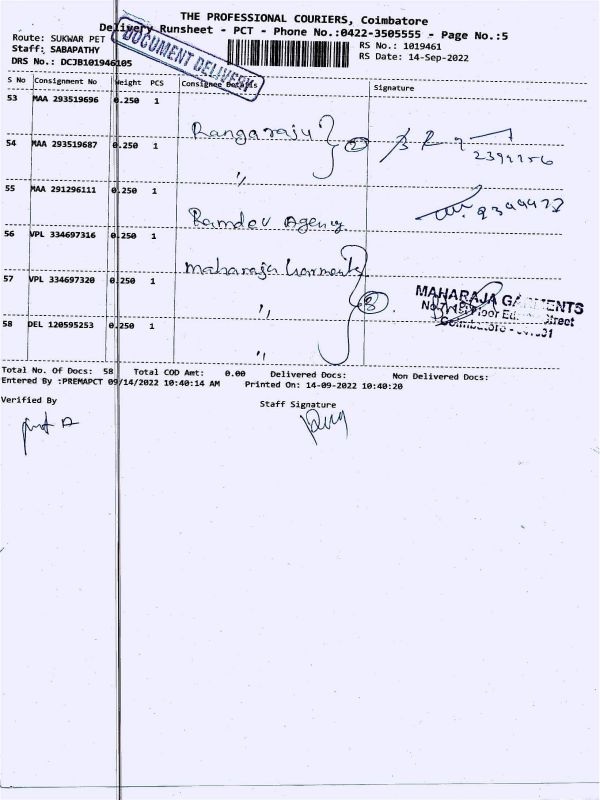 THE PROFESSIONAL COURIERS, Coimbatore
Delivery Runsheet - PCT - Phone No.:0422-3505555 - Page No.:5
Route: SUKWAR PET
Staff: SABAPATHY
DRS No.: DCJB101946105
DOCUMENT DELIVERY
RS No.: 1019461
RS Date: 14-Sep-2022
S No Consignment No Weight PCS Consignee Details Signature
53 MAA 293519696 0.250 1 Rangaraju
54 MAA 293519687 0.250 1 " 2
55 MAA 291296111 0.250 1 Ramdev Agency
56 VPL 334697316 0.250 1 Maharaja Garments
57 VPL 334697320 0.250 1 " 3
MAHARAJA GARMENTS
58 DEL 120595253 0.250 1 "
Total No. Of Docs: 58 Total COD Amt: 0.00 Delivered Docs: Non Delivered Docs:
Entered By :PREMAPCT 09/14/2022 10:40:14 AM Printed On: 14-09-2022 10:40:20
Verified By Staff Signature